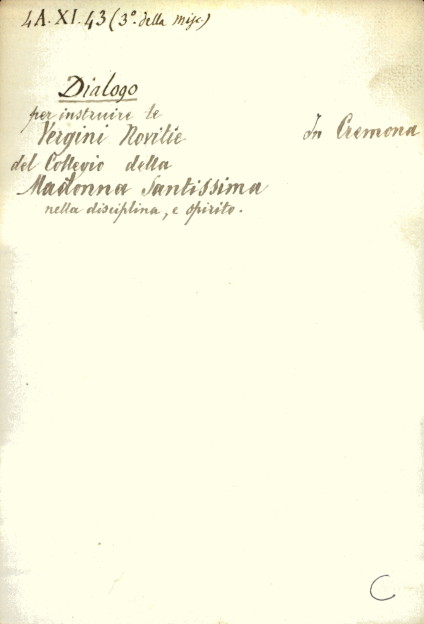 4A.XI.43 (3º. della misc)
Dialogo
per instruire le
Vergini Novitie
In Cremona
del Collegio della
Madonna Santissima
nella disciplina, e spirito.
C